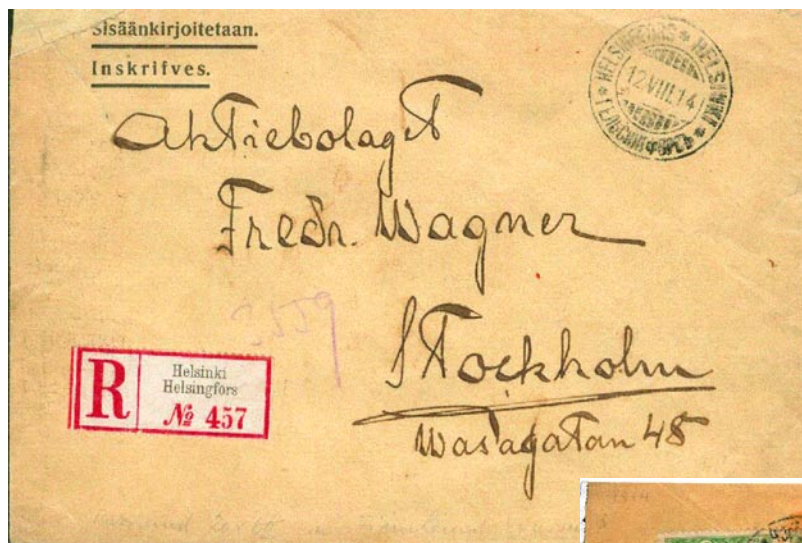 Sisäänkirjoitetaan.
Inskrifves.
HELSINGFORS * HELSINKI
12.VIII.14
Aktiebolaget
Fredr. Wagner
3559
Stockholm
Wasagatan 48
R
Helsinki
Helsingfors
№ 457
1914